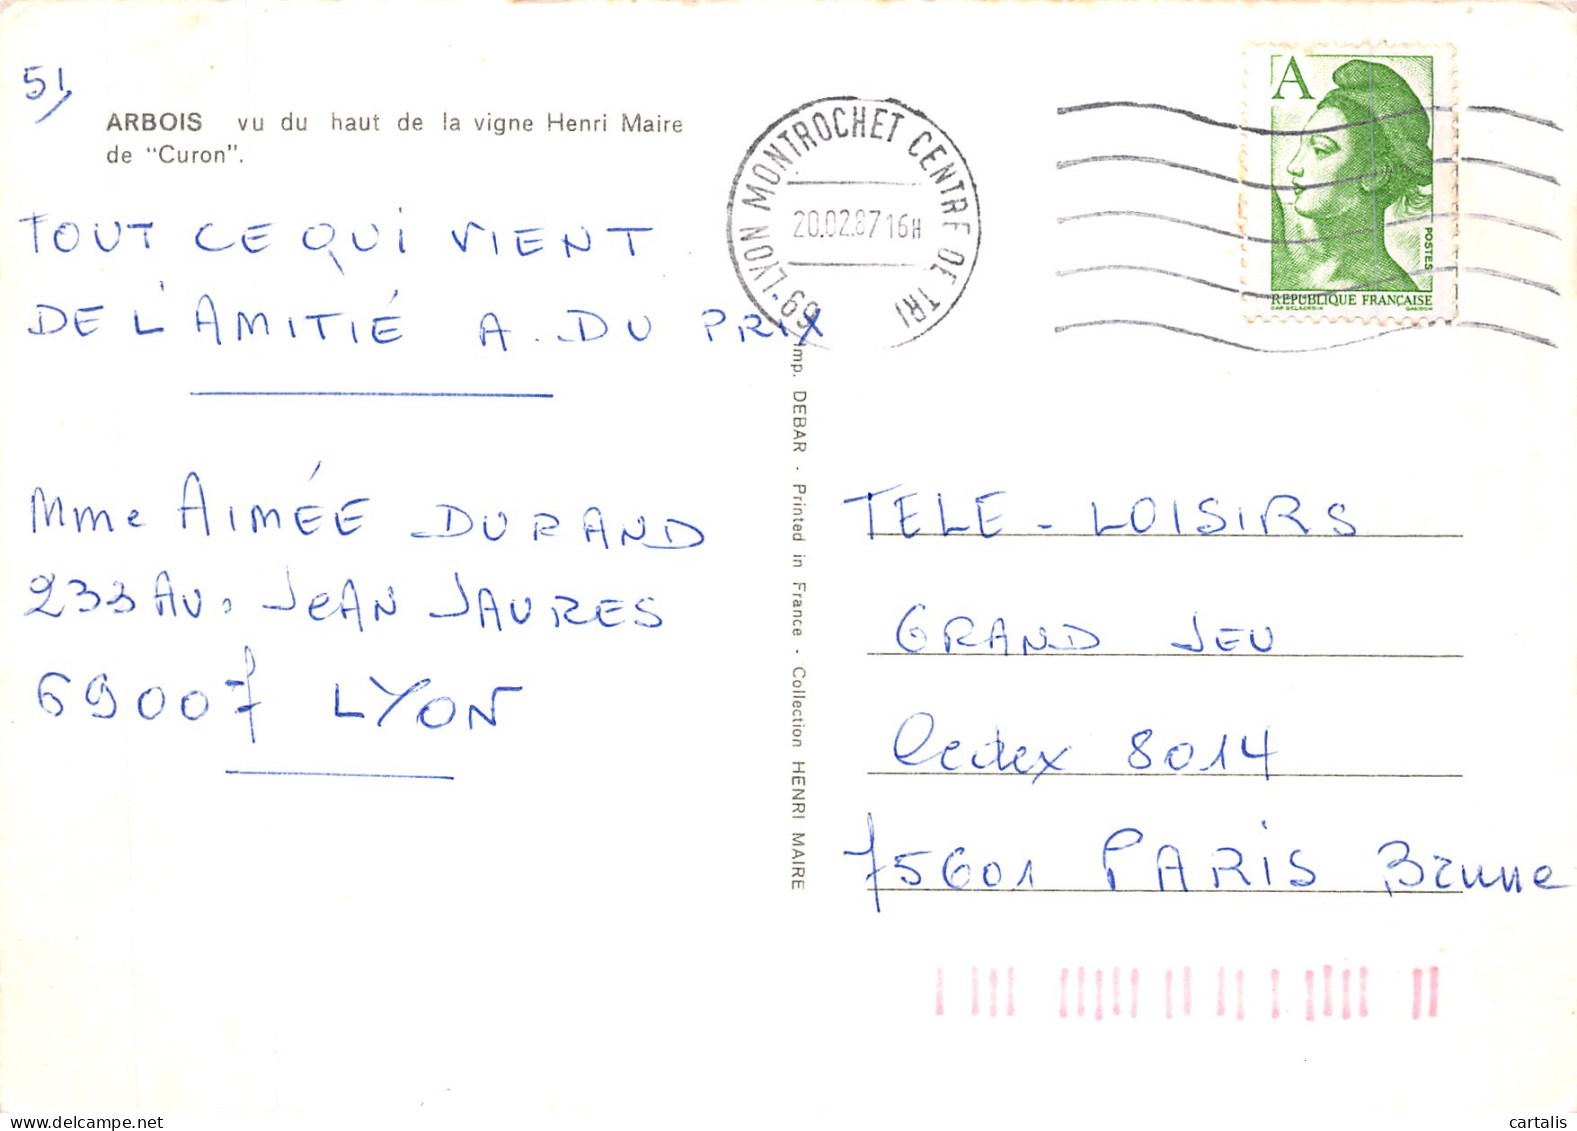 51
ARBOIS vu du haut de la vigne Henri Maire
de "Curon".
TOUT CE QUI VIENT
DE L'AMITIÉ A. DU PRIX
Mme AIMÉE DURAND
233 AV. JEAN JAURES
69007 LYON
69-LYON MONTROCHET CENTRE DE TRI
20.02.87 16H
A
POSTES
REPUBLIQUE FRANÇAISE
CAP DELACROIX GANDON
Imp. DEBAR - Printed in France - Collection HENRI MAIRE
TELE - LOISIRS
GRAND JEU
Cedex 8014
75601 PARIS Brune
cartalis